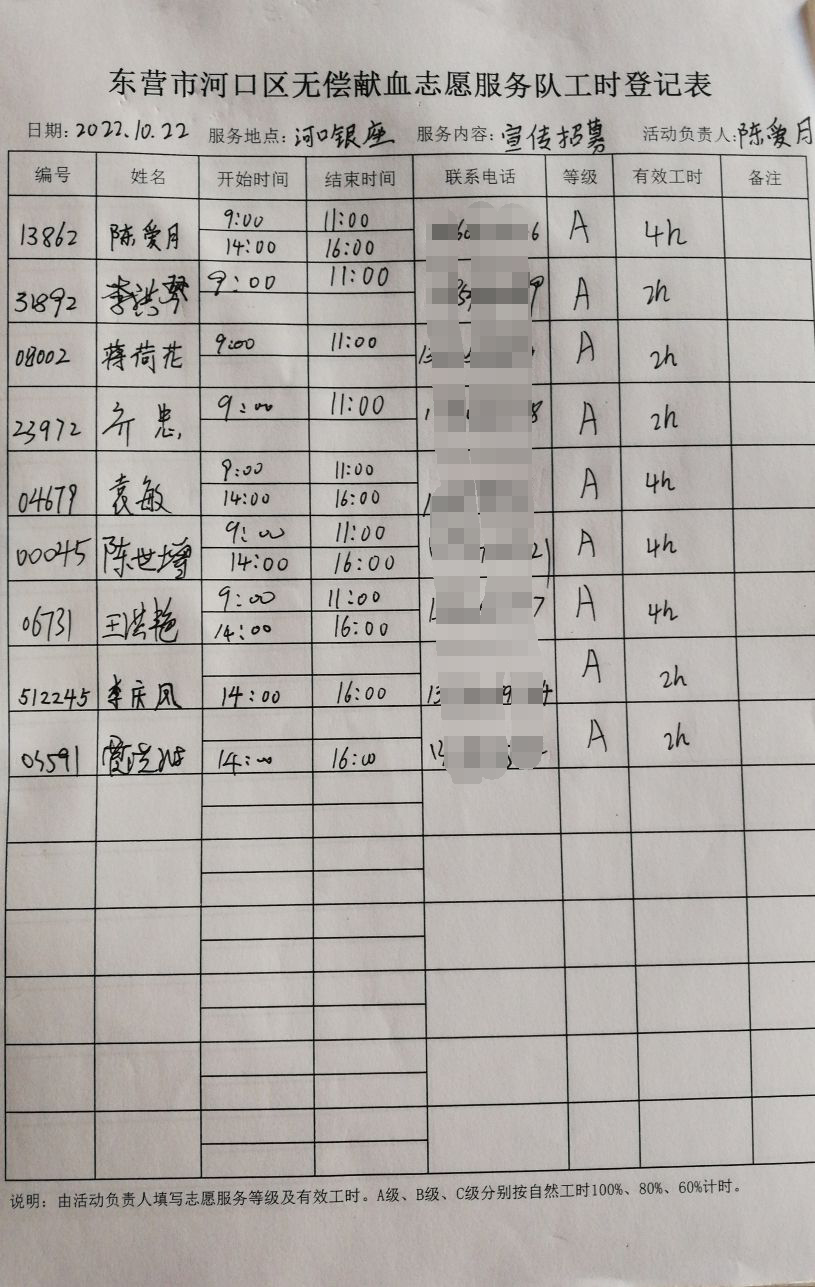 东营市河口区无偿献血志愿服务队工时登记表
日期: 2022.10.22 服务地点: 河口银座 服务内容: 宣传招募 活动负责人: 陈爱月
编号 姓名 开始时间 结束时间 联系电话 等级 有效工时 备注
13862 陈爱月 9:00 11:00 A 4h
14:00 16:00
31892 李洪琴 9:00 11:00 A 2h
08002 蒋荷花 9:00 11:00 A 2h
23972 亓忠 9:00 11:00 A 2h
04679 袁敏 9:00 11:00 A 4h
14:00 16:00
00045 陈世增 9:00 11:00 A 4h
14:00 16:00
06731 王洪艳 9:00 11:00 A 4h
14:00 16:00
512245 李庆凤 14:00 16:00 A 2h
03591 14:00 16:00 A 2h
说明: 由活动负责人填写志愿服务等级及有效工时。A级、B级、C级分别按自然工时100%、80%、60%计时。